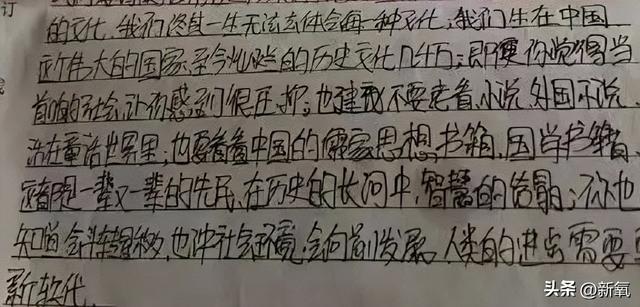 订
的文化，我们终其一生无法去体会每一种文化，我们生在中国
这个伟大的国家，至今灿烂的历史文化几千万；即便你觉得当
首的社会，让你感到很压抑；也建我不要老看小说，外国小说
活在童话世界里；也要看看中国的儒家思想书籍，国学书籍，
这都是一辈又一辈的先民，在历史的长河中，智慧的结晶；你也
知道会斗转移，也冲社会环境，会向前发展，人类的进步需要
新软化。
头条 @新氧